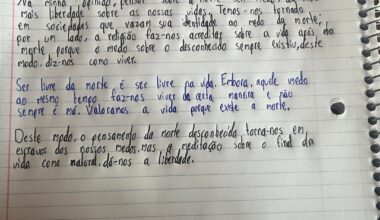 Na minha opinião, pensar sobre a
mais liberdade sobre as nossas vidas. Temos-nos tornado
em sociedades que vazam sua identidade ao medo da morte,
por um lado, a religião faz-nos acreditar sobre a vida após da
morte, porque o medo sobre o desconhecido sempre existiu, deste
modo, diz-nos como viver.
Ser livre da morte, é ser livre pa vida. Embora, aquele medo
ao mesmo tempo faz-nos viver da certa maneira e não
sempre é má. Valoramos a vida porque existe a morte.
Deste modo, o pensamento da morte desconhecida torna-nos em
escravos dos nossos medos, mas a meditação sobre o final da
vida como natural, dá-nos a liberdade.